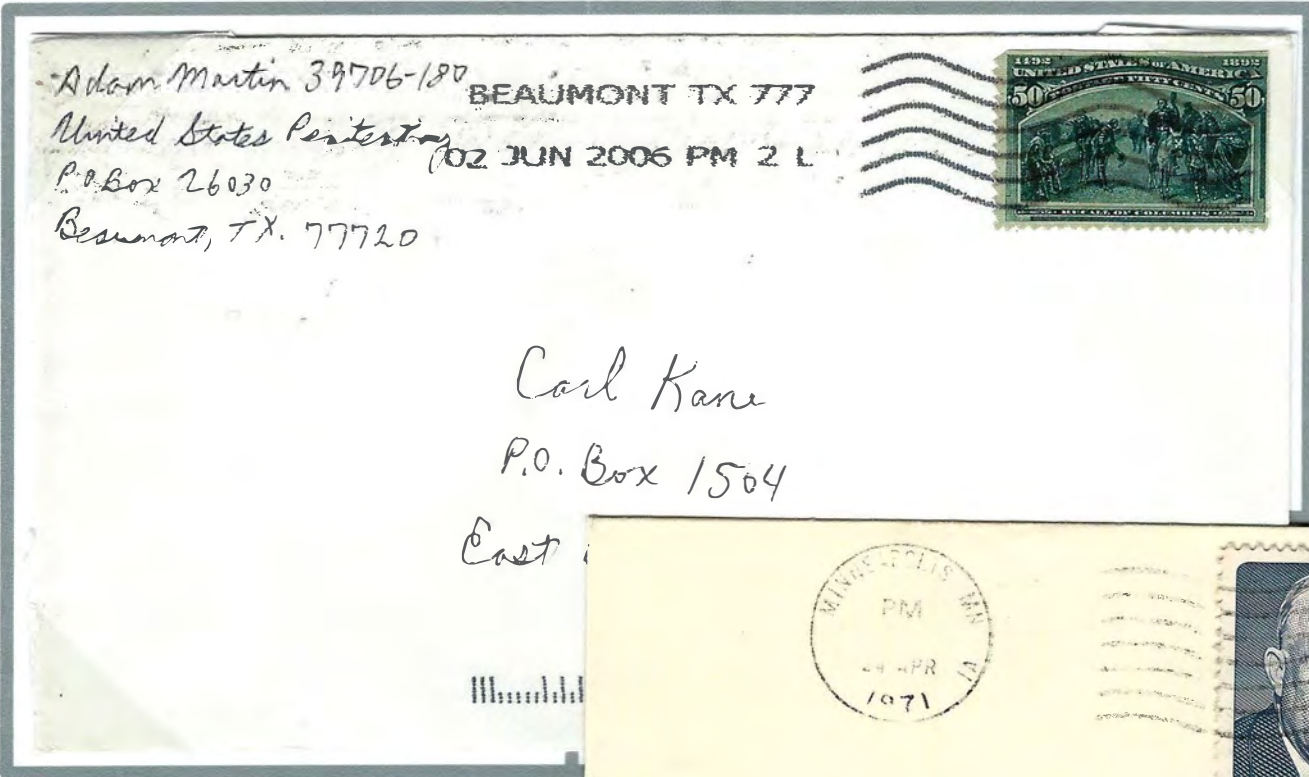 Adam Martin 39706-180
United States Penitentiary
P.O Box 26030
Beaumont, TX. 77720
BEAUMONT TX 777
02 JUN 2006 PM 2 L
1492 1892
UNITED STATES OF AMERICA
50 FIFTY CENTS 50
RECALL OF COLUMBUS
Carl Kane
P.O. Box 1504
East
MINNEAPOLIS MN
PM
APR
1971
1A